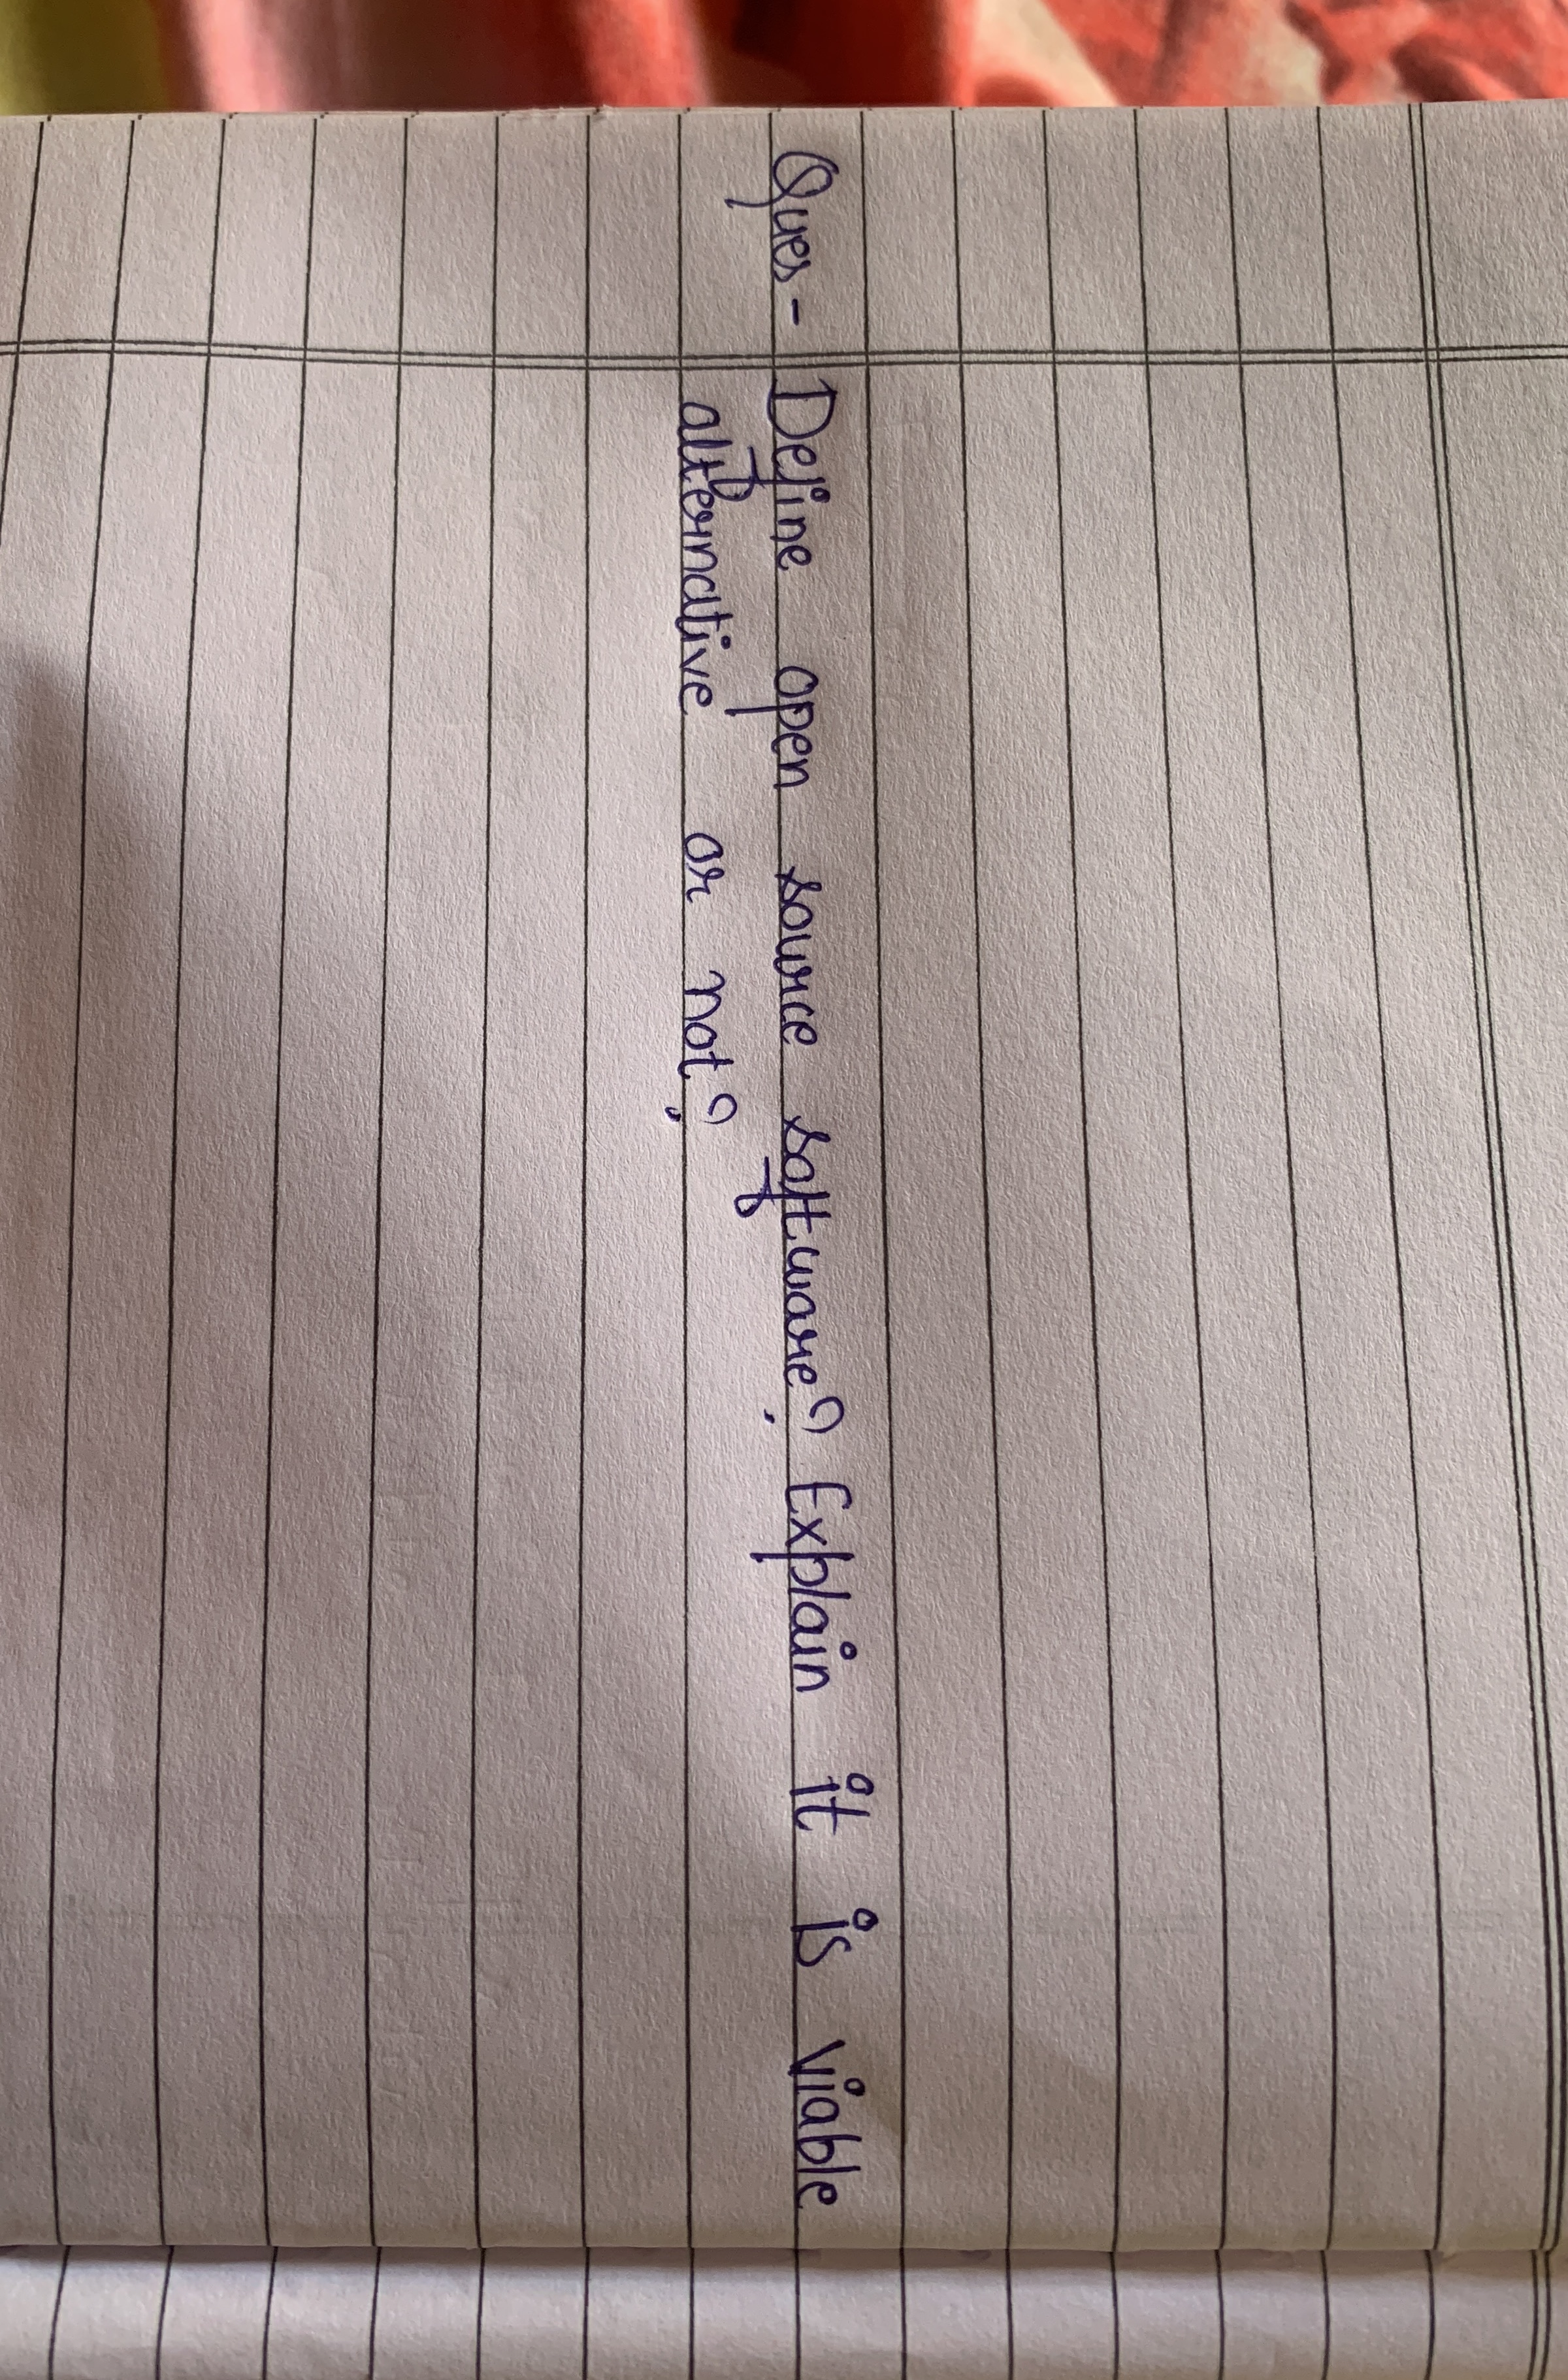 Ques- Define open source software? Explain it is viable
alternative or not?